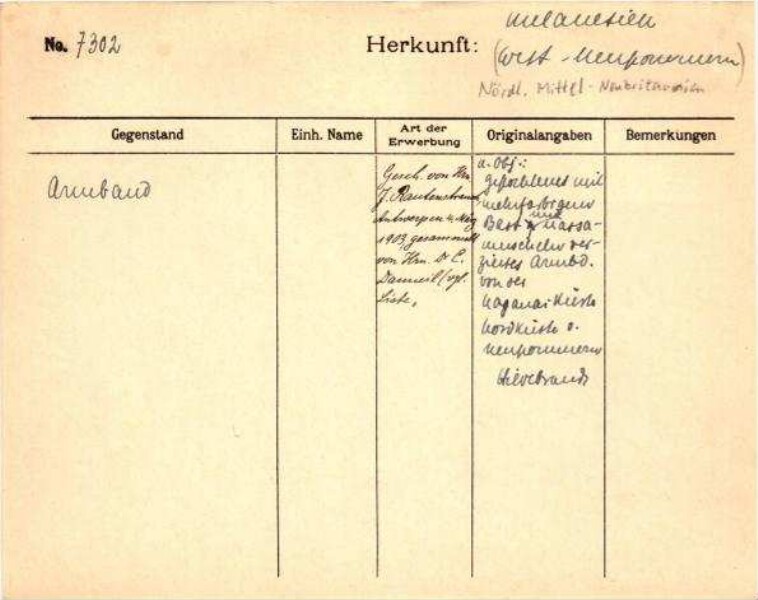 No. 7302
Herkunft: Melanesien
(West-Neupommern)
Nördl. Mittel-Neubritannien
Gegenstand
Einh. Name
Art der Erwerbung
Originalangaben
Bemerkungen
Armband
Gesch. von Hrn
J. Rautenstrauch
Antwerpen 4. März
1903, gesammelt
von Hrn. Dr C.
Danneil (vgl.
Liste,
a. Obj.:
geflochtenes mit
mehrfarbigem
Bast und Nassa-
muscheln ver-
ziertes Armbd.
von der
Nakanai Küste
Nordküste v.
Neupommern
Hildebrandt